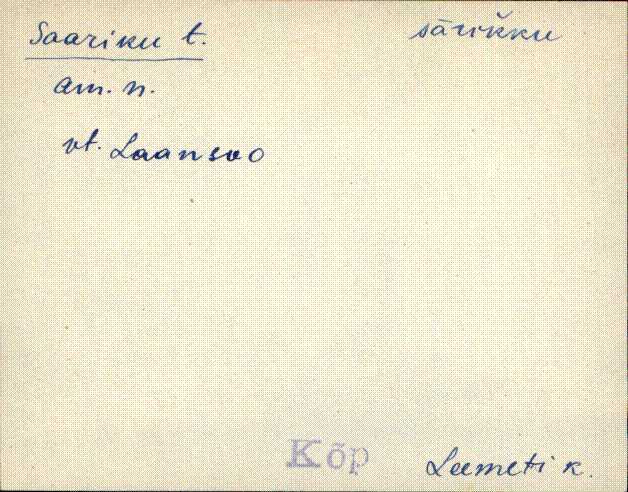 Saariku t. sāriкku
am. n.
vt. Laansoo
Kõp
Leemeti k.